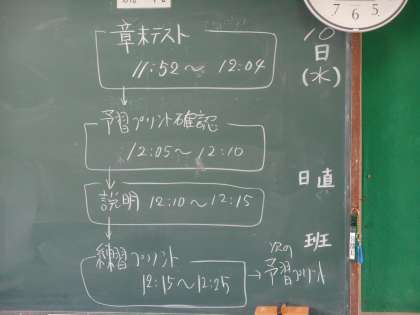 章末テスト
11:52～12:04
予習プリント確認
12:05～12:10
説明 12:10～12:15
練習プリント
12:15～12:25
→ 次の
予習プリント
日
(水)
日直
班
7 6 5